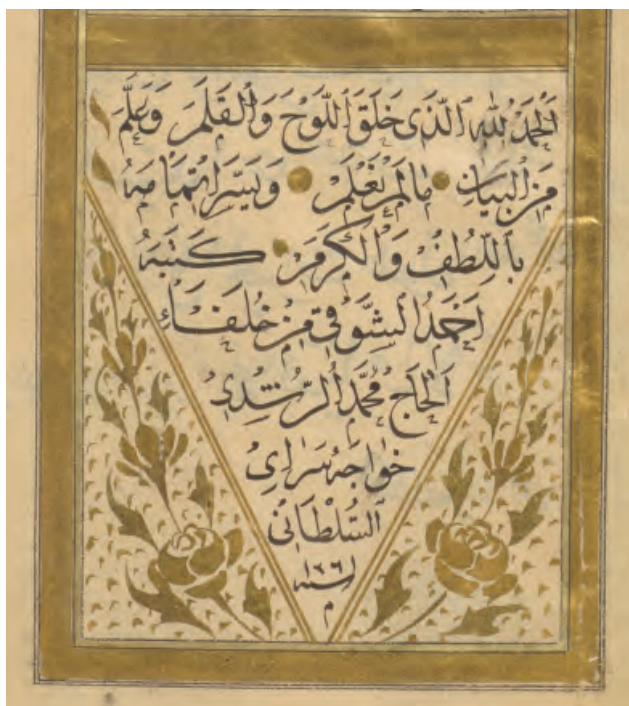 اَلْحَمْدُ لِلّٰهِ الَّذِى خَلَقَ اللَّوْحَ وَالْقَلَمَ وَعَلَّمَ
مِنَ الْبَيَانِ مَا لَمْ نَعْلَمْ وَيَسَّرَ اِتْمَامَهُ
بِاللُّطْفِ وَالْكَرَمِ كَتَبَهُ
اَحْمَدُ الشَّوْقِى مِنْ خُلَفَاءِ
اَلْحَاجّ مُحَمَّدُ الرُّشْدِىُّ
خَوَاجَهِٔ سَرَاىِ
السُّلْطَانِىُّ
سنه
م